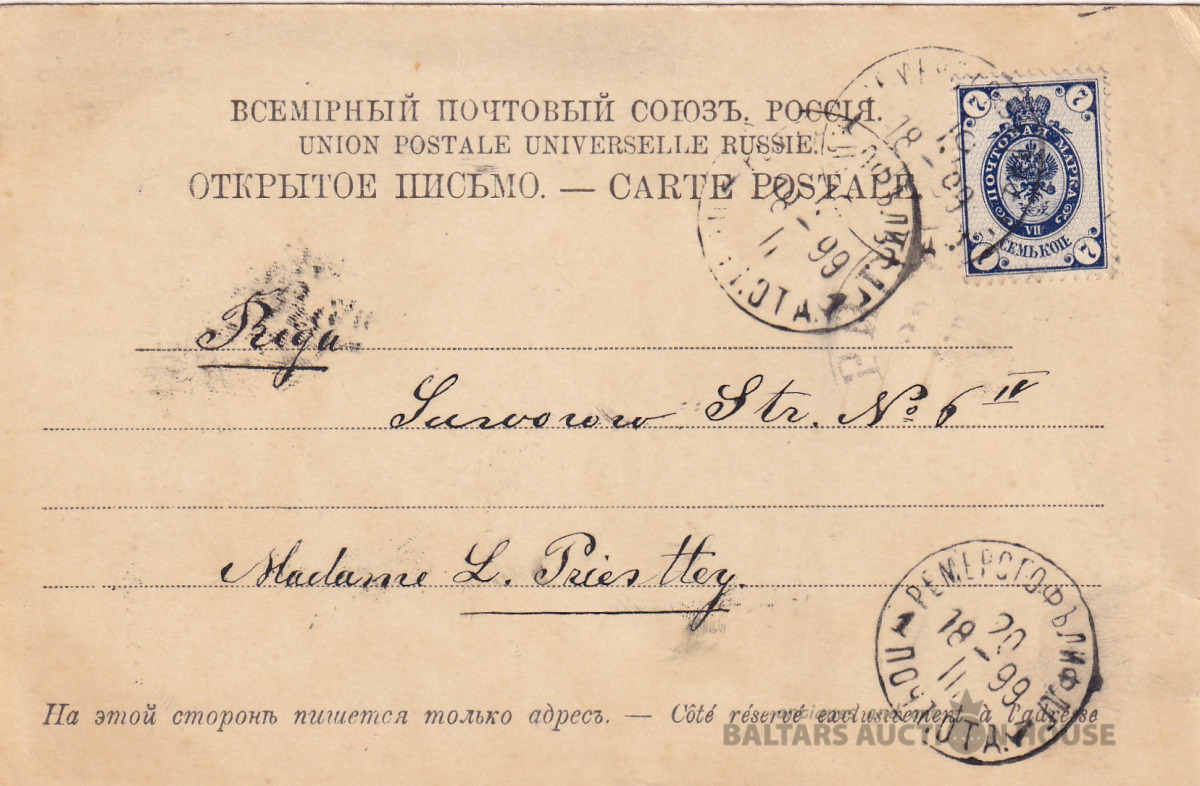 ВСЕМІРНЫЙ ПОЧТОВЫЙ СОЮЗЪ. РОССІЯ.
UNION POSTALE UNIVERSELLE RUSSIE.
ОТКРЫТОЕ ПИСЬМО. — CARTE POSTALE
7 7
ПОЧТОВАЯ МАРКА
VII
СЕМЬ КОП.
7 7
18 99
Riga
Suworow Str. No 6 IV
Madame L. Priestley.
20
18 99
II
На этой сторонѣ пишется только адресъ. — Côté réservé exclusivement à l'adresse
BALTARS AUCTION HOUSE